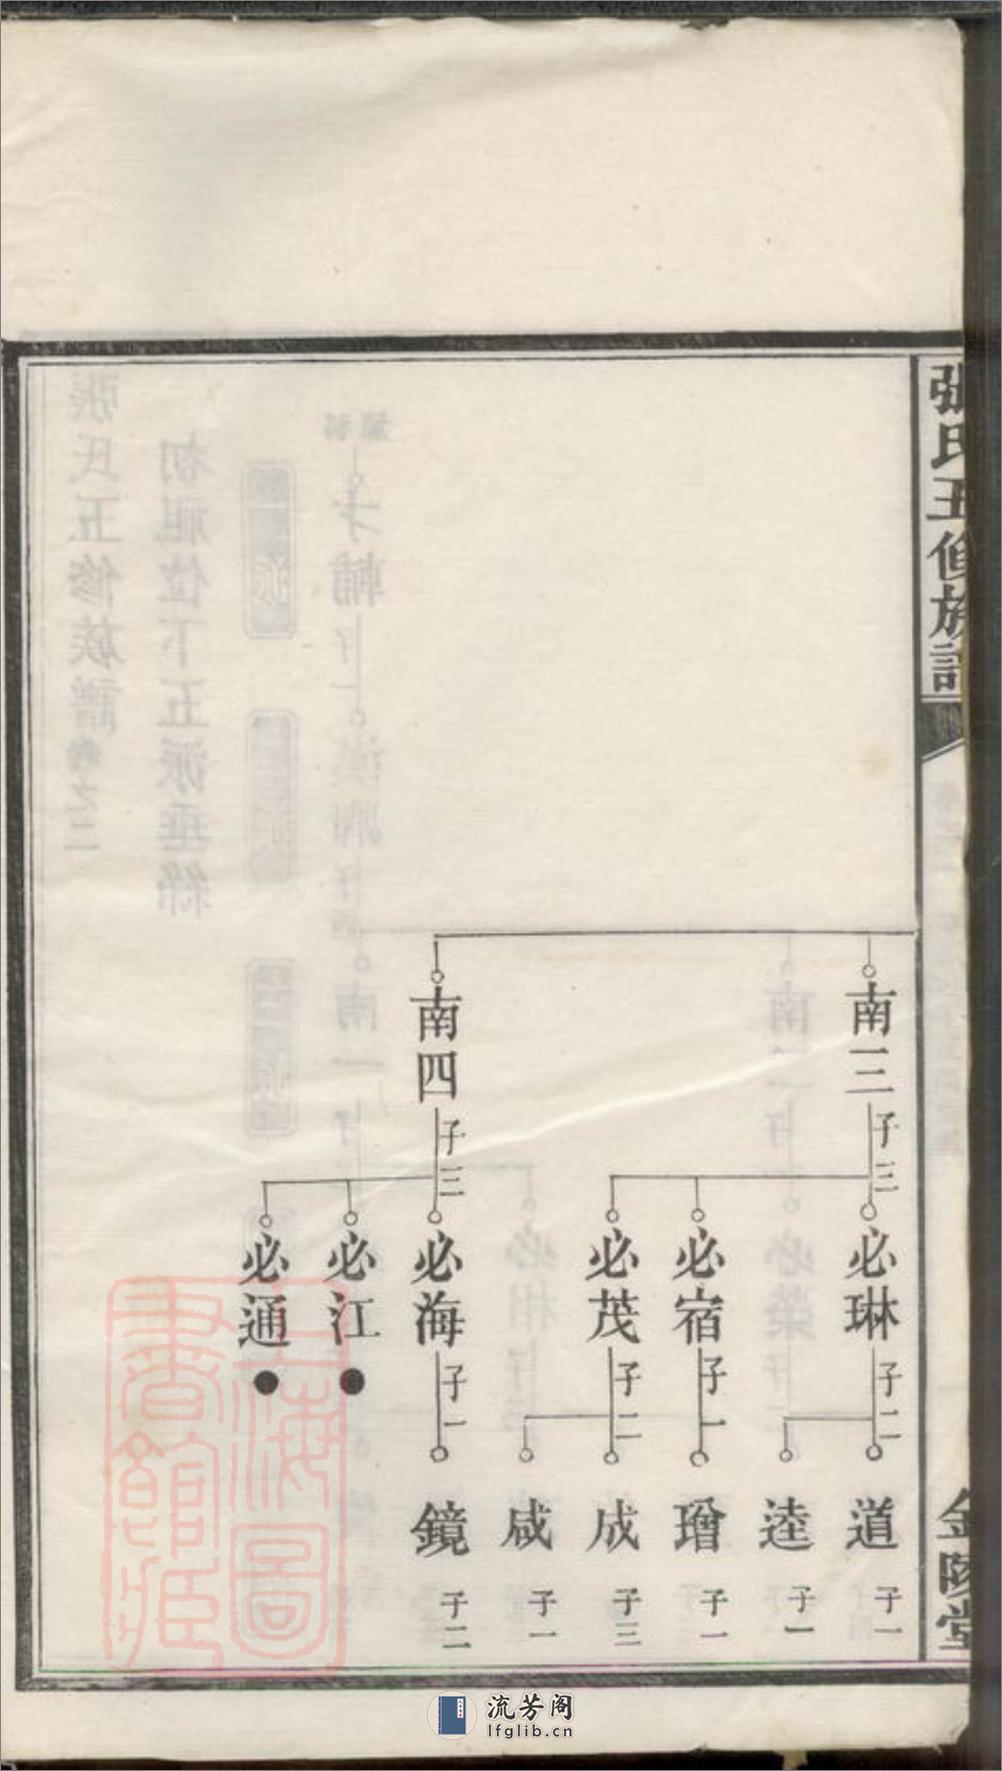 張氏五修族譜
金陵堂
南三
子三
南四
子三
必琳
子二
必宿
子一
必茂
子二
必海
子一
必江
必通
道
子一
逵
子一
璔
子一
成
子三
咸
子一
鏡
子二
上海圖書館藏
流芳阁
lfglib.cn